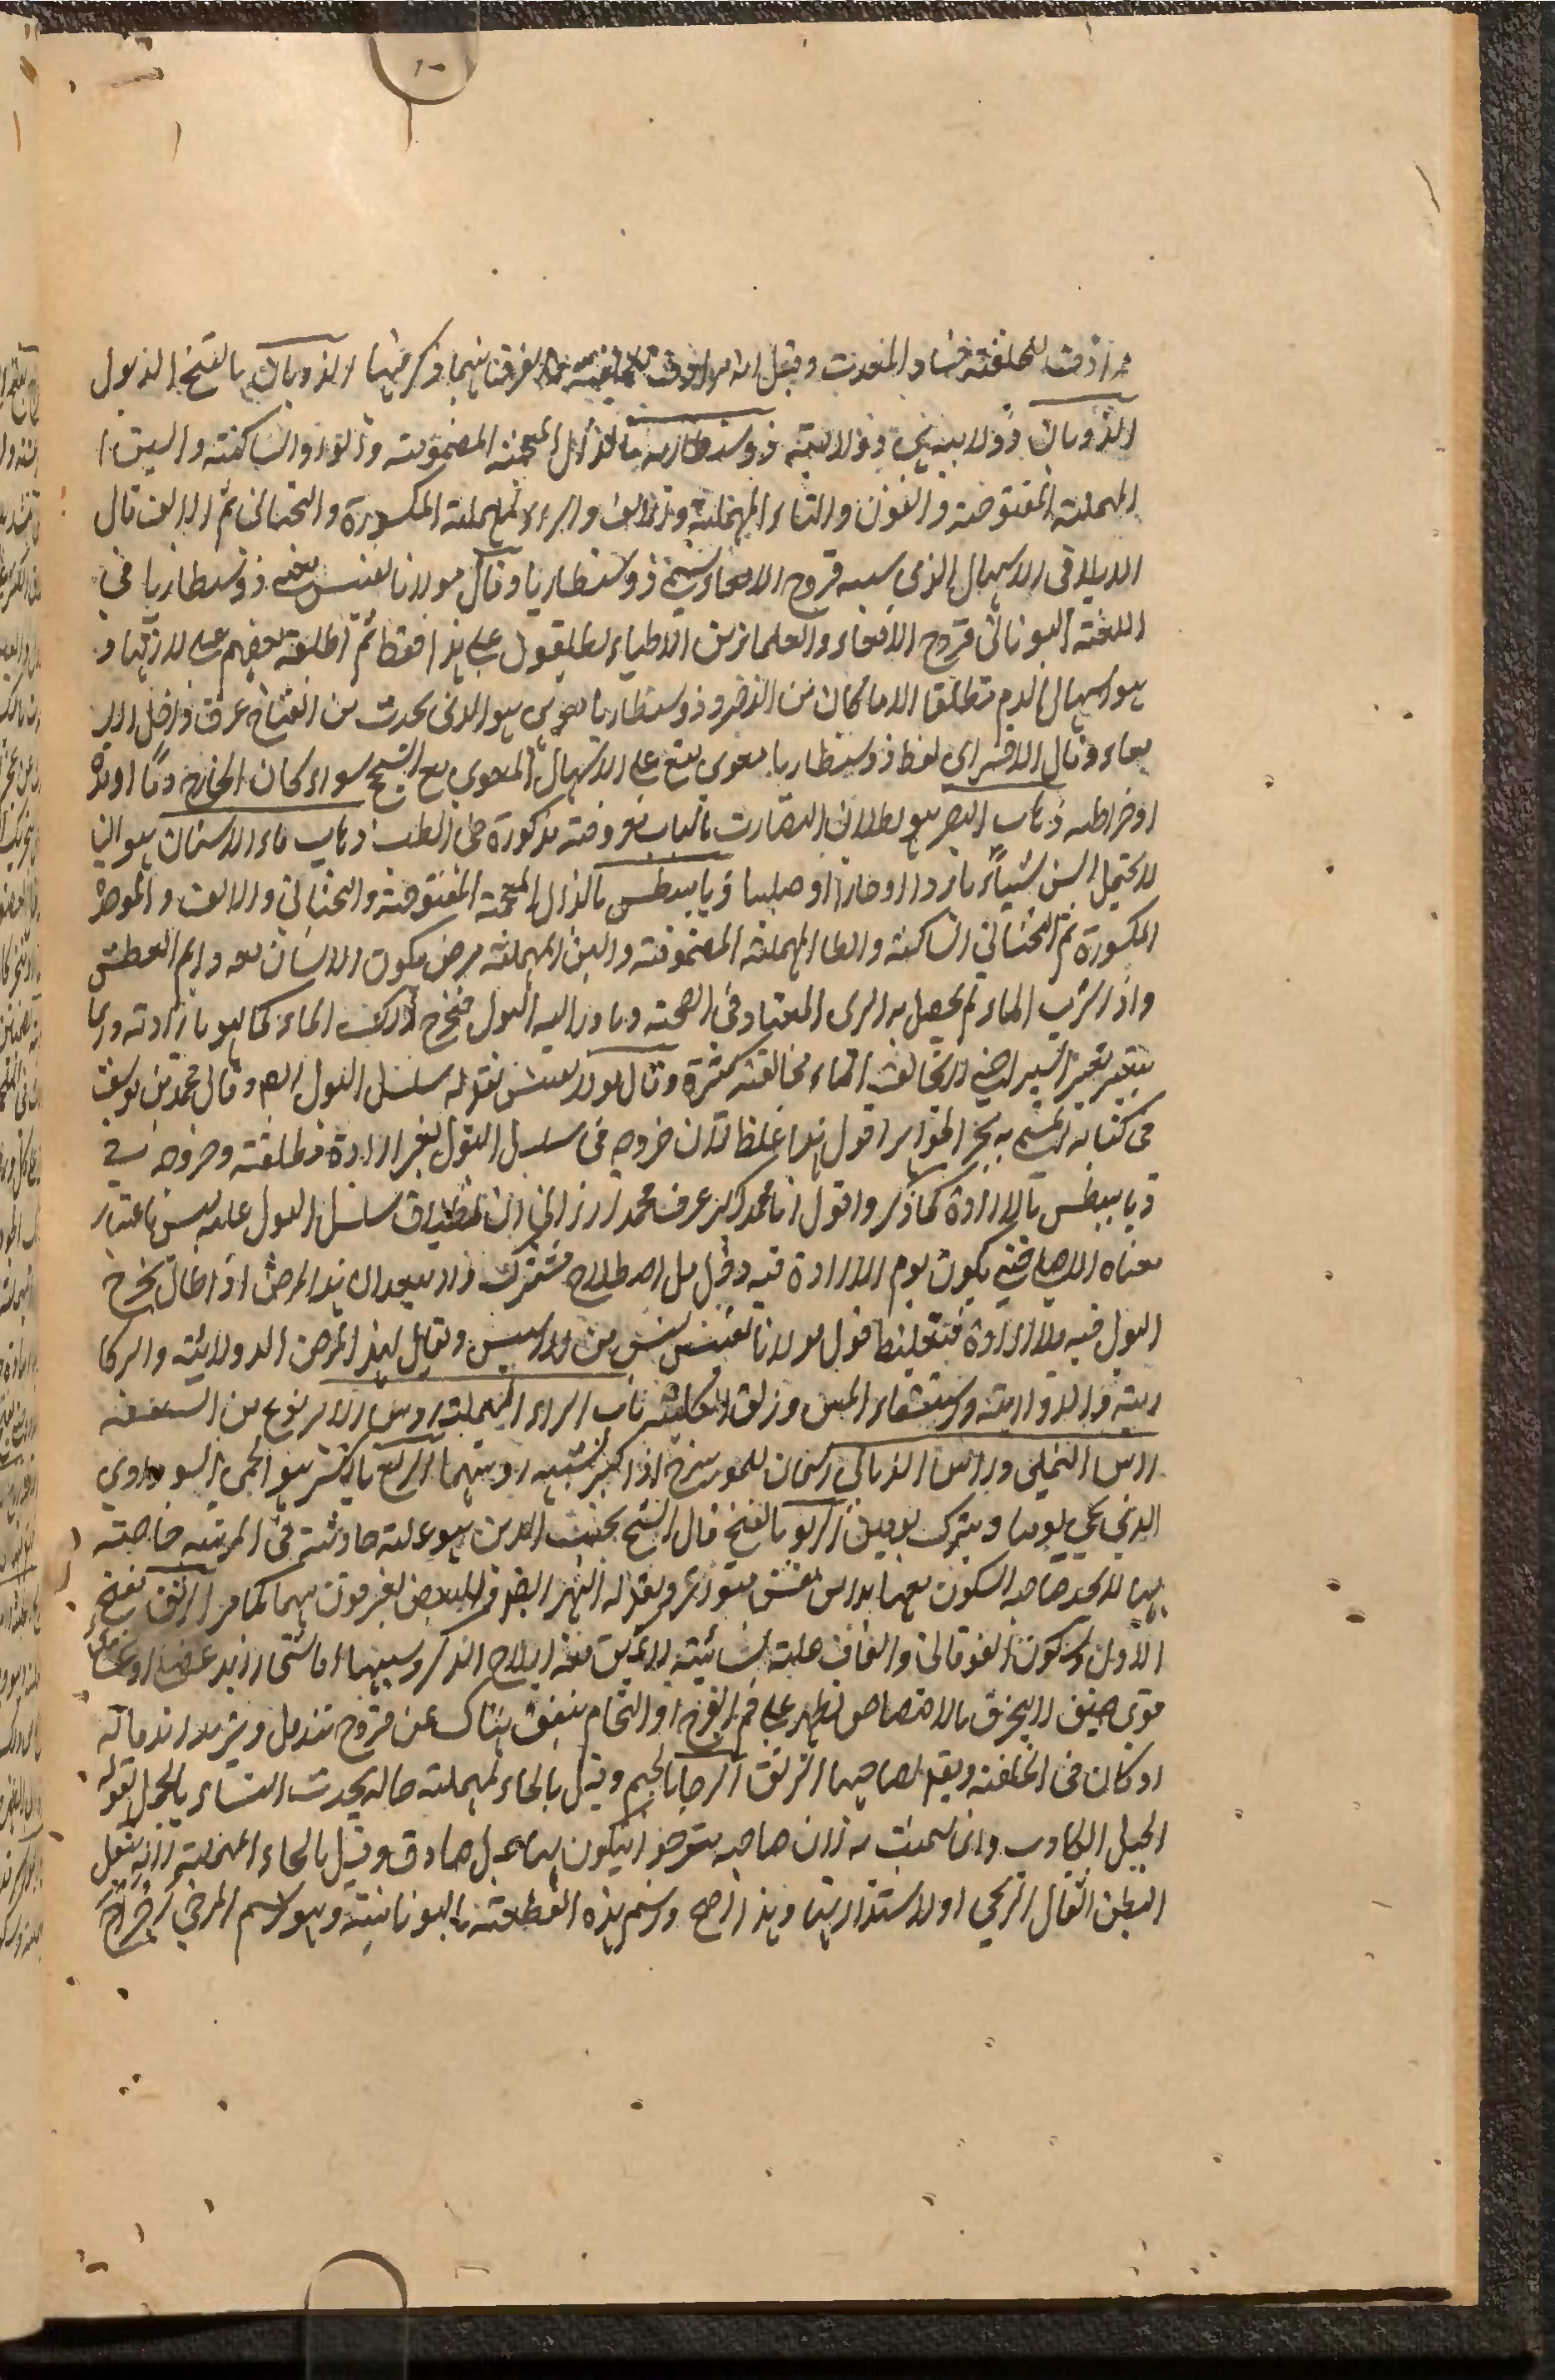 مرادفة للخلفة فساد المعدة وقيل انه مرادف للخلفة فرقنا بينهما وذكر فيها الذوبان بالفتح الذبول
الذوبان ذولابية هي دولابية ذوسنطاريا بالذال المعجمة المضمومة والواو الساكنة والسين
المهملة المفتوحة والنون والتاء المهملة والالف والراء المهملة المكسورة والتحتاني ثم الالف قال
الايلاقي الاسهال الذي سببه قروح الامعاء يسمى ذوسنطاريا وقال مولانا نفيس معنى ذوسنطاريا في
اللغة اليوناني قروح الامعاء والعلماء من الاطباء يطلقون على هذا فقط ثم اطلقه بعضهم على
هو اسهال الدم مطلقا الا ما كان من الذخر وذوسنطاريا معوي هو الذي يحدث من انفتاح عرق داخل الا
معاء وقال الاقسرائي لفظ ذوسنطاريا معوي يقع على الاسهال المعوي مع السحج سواء كان الخارج دما او مدة
او خراطة ذهاب البصر هو بطلان البصارت باسباب معروفة مذكورة في الطب ذهاب ماء الاسنان هو ان
لا يحتمل السن شيئا باردا او حارا او صلبا ذيابيطس بالذال المعجمة المفتوحة والتحتاني والالف والموحدة
المكسورة ثم التحتاني الساكنة والطا المهملة المضمومة والسين المهملة مرض يكون الانسان معه دايم العطش
واذا شرب الماء لم يحصل به الري المعتاد في الصحة وبادر اليه البول فيخرج ذلك الماء كما هو بارادته وربما
يتغير تغيرا يسيرا لا يخالف الماء مخالفة كثيرة وقال مولانا نفيس نقوله سلسل البول اهـ وقال محمد بن يوسف
في كتابه المسمى به بحر الجواهر اقول هذا غلظ لان خروجه في سلسل البول بغير ارادة مطلقة وخروجه في
ذيابيطس بالارادة كما ذكر واقول انا محمد اكبر عرف محمد ارزاني ان اطلاق سلسل البول عليه ليس باعتبار
معناه الاصلي حتى يكون عدم الارادة فيه دخل بل اصطلاح مشترك ولا يبعد ان هذا المرض اذا طال يخرج
البول فيه بلا ارادة فتغليط قول مولانا نفيس ليس من ويقال لهذا المرض الدولابية والبركا
رية والدوارية واستسقاء المس وزلق الكلية باب الراء المهملة راس الا نوع من السعفة
الراس النخلي وراس الذبابي اسمان للمورسرج اذا كبر لشبهه رويتهما الربع بالكسر هو الحمى السوداوي
الذي يحمي يوما ويترك يومين الربو بالفتح قال الشيخ نجيب الدين هو علة حادثة في الرئة خاصة
بها لا يجد صاحبه السكون معها بدا من نفس متواتر ويقال له البهر ايضا وبعض يفرقون بينهما كما مر الرتق بفتح
الاول وسكون الفوقاني والقاف علة نسائية لا يمكن معه ايلاج الذكر وسببها اما شيء زائد عضلي او غشائي
قوي صفيق لا ينخرق بالافتضاض يظهر على فم الفرج او التحام يتفق هناك عن قروح تندمل ويتمدد اندماله
او كان في الخلقة ويقال لصاحبها الرتق الرجا بالجيم وقيل بالحاء المهملة حاله يحدث النساء بالحمل يقوله
الحبل الكاذب وانما سميت به لان صاحبه يترجو ان يكون بها حبل صادق وقيل بالحاء المهملة لانه يثقل
البطن اثقال الرحي او لاستدارتها وهذا اصح واسم هذه القطعة باليونانية وهو لاسم المرض